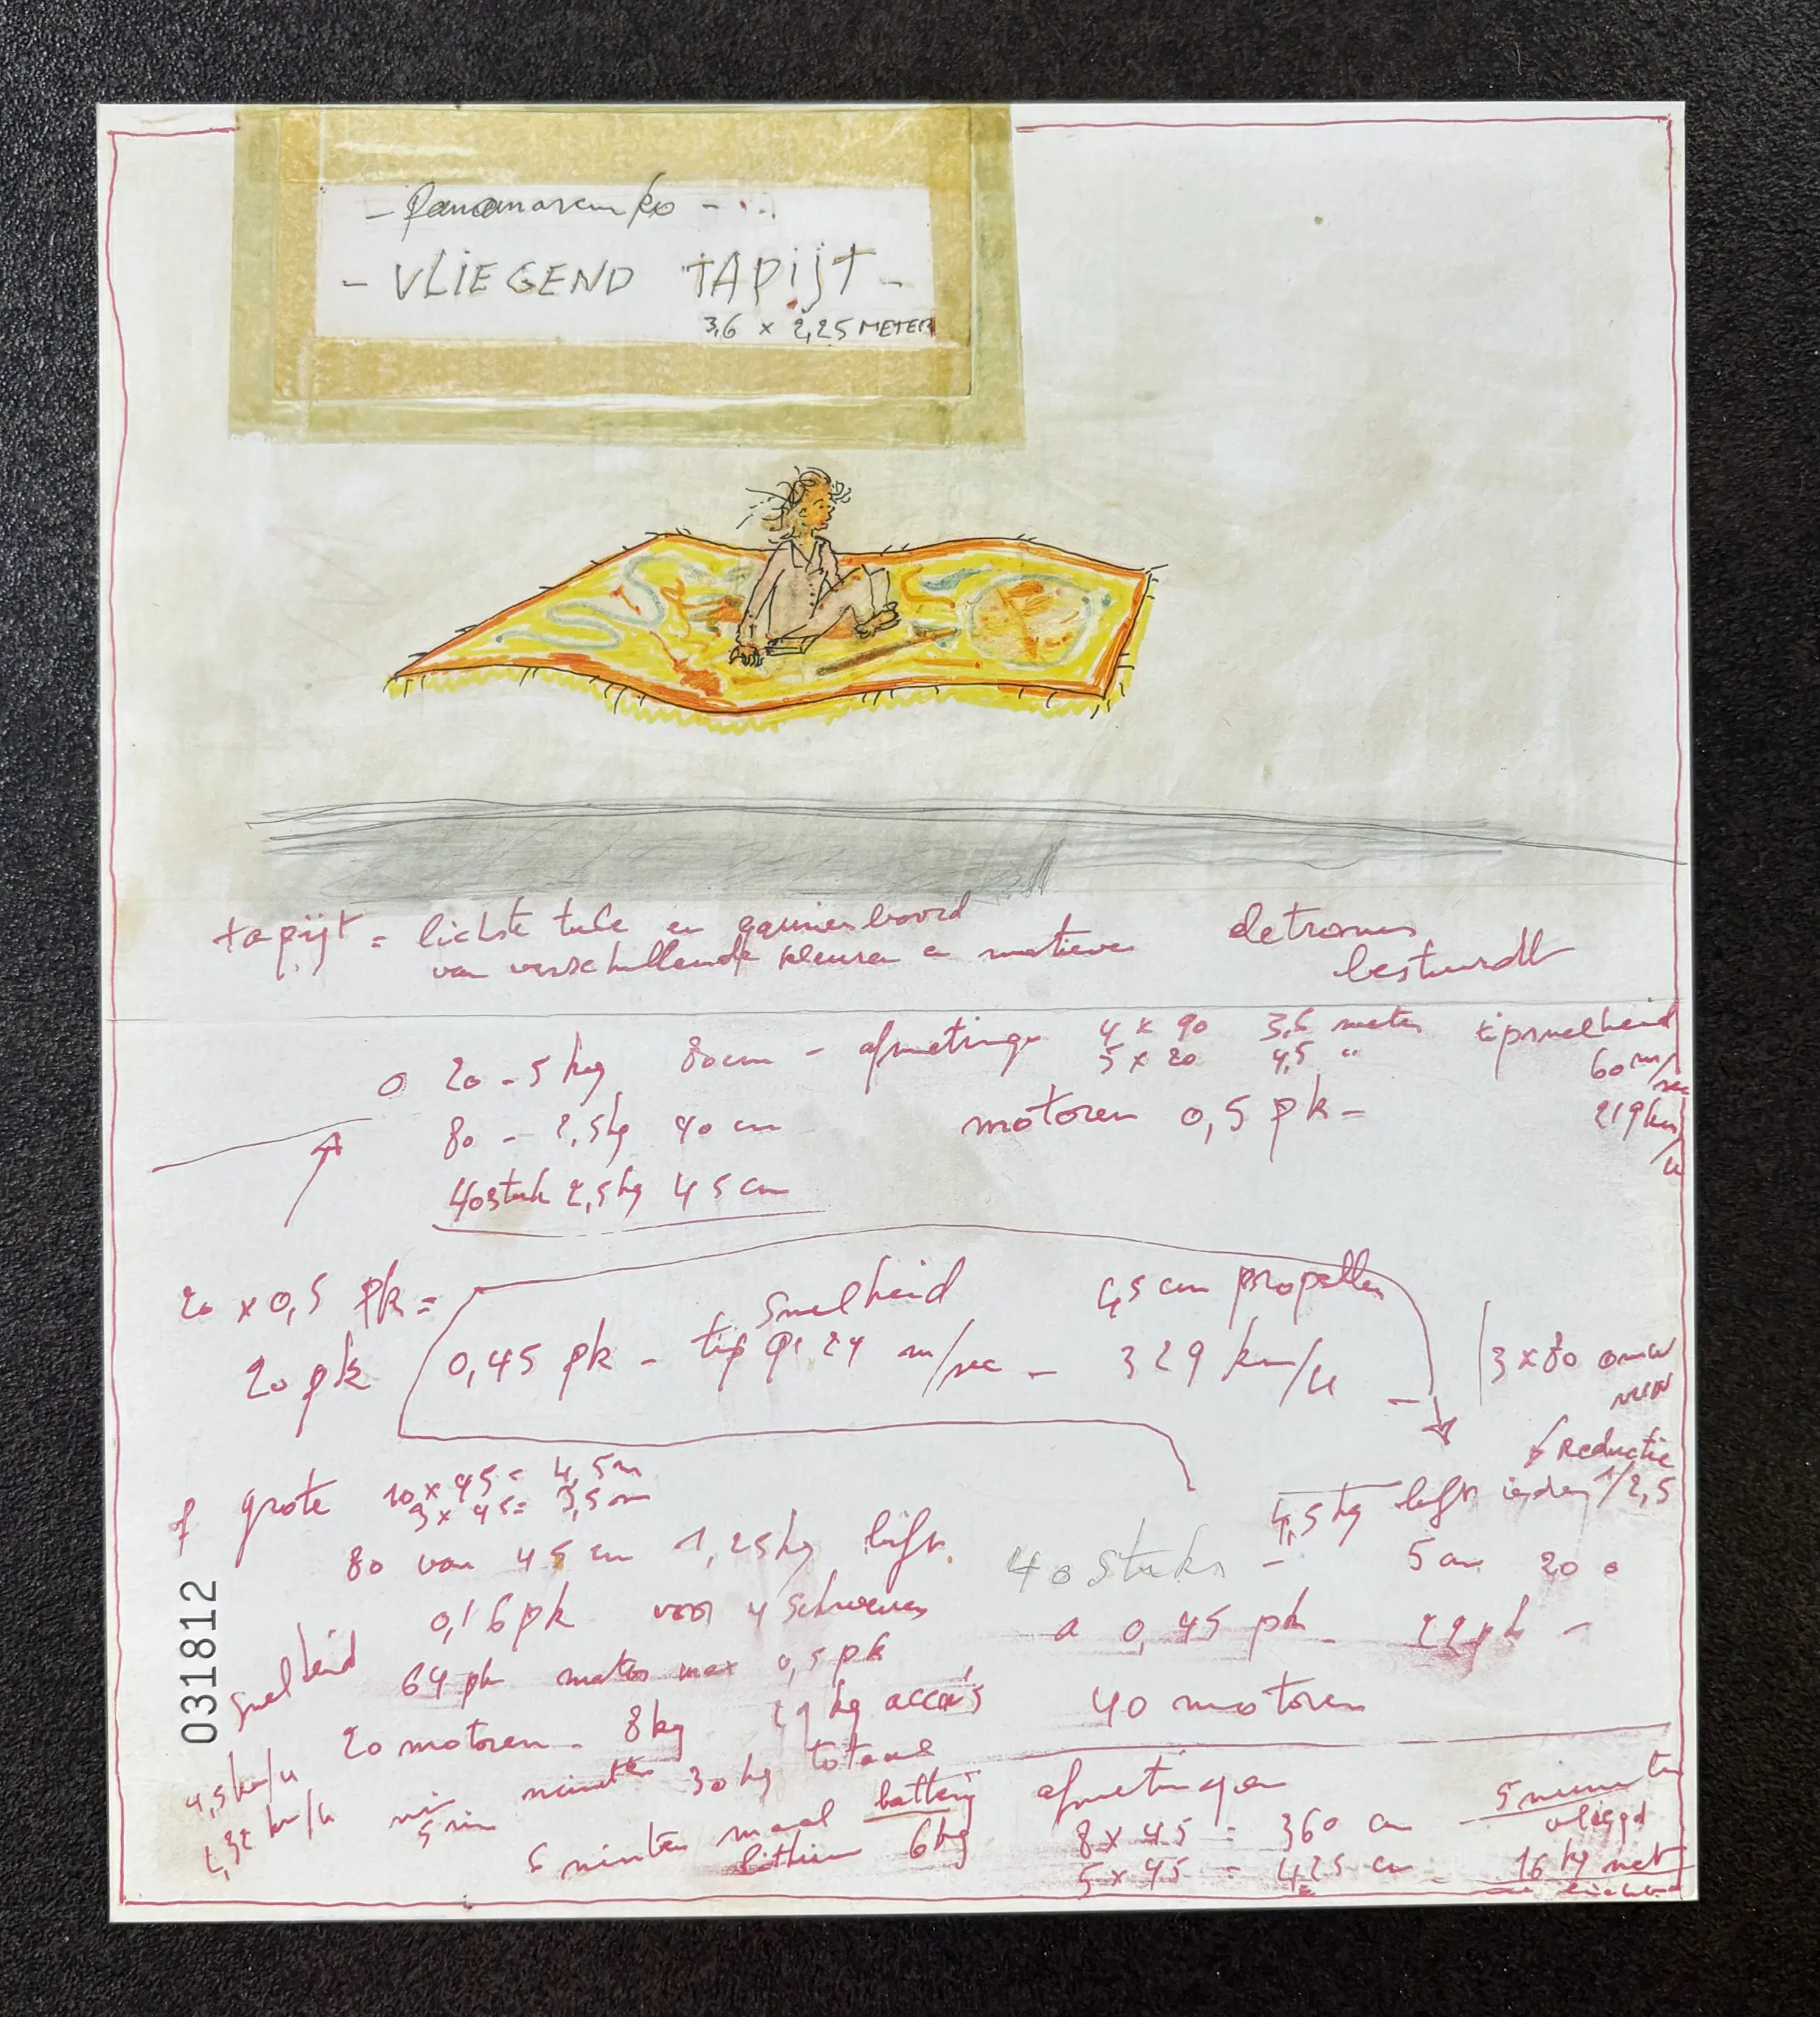 - Panamarenko -
- VLIEGEND TAPIJT -
3,6 x 2,25 METER
tapijt = lichte tule en boord
van verschillende kleuren en motieven
bestuurdt
20 - 5 kg 80 cm - afmetingen 4 x 90 3,6 meter tipsnelheid
5 x 4,5 " 60 m/sec
80 - 2,5 kg 40 cm motoren 0,5 pk - 219 km/u
40 stuk 2,5 kg 45 cm
20 x 0,5 pk =
20 pk
snelheid 45 cm propeller
0,45 pk - tip m/sec - 329 km/u -
3 x 80
reductie
1/2,5
grote 10 x 45 = 4,5 m
x 45 = 3,5 m
4,5 kg lift
80 van 45 cm 1,25 kg lift
40 stuks -
5 cm 20
0,16 pk voor 4 schroeven
a 0,45 pk -
snelheid
64 pk motor max 0,5 pk
20 motoren - 8 kg kg accu's
40 motoren
4,5 km/u
minuten 30 kg totaal
km/u
5 min
minuten maal battery
lithium 6 kg
afmetingen
8 x 45 = 360 cm -
5 x 45 = 425 cm -
5 minuten
vliegd
16 kg met
031812